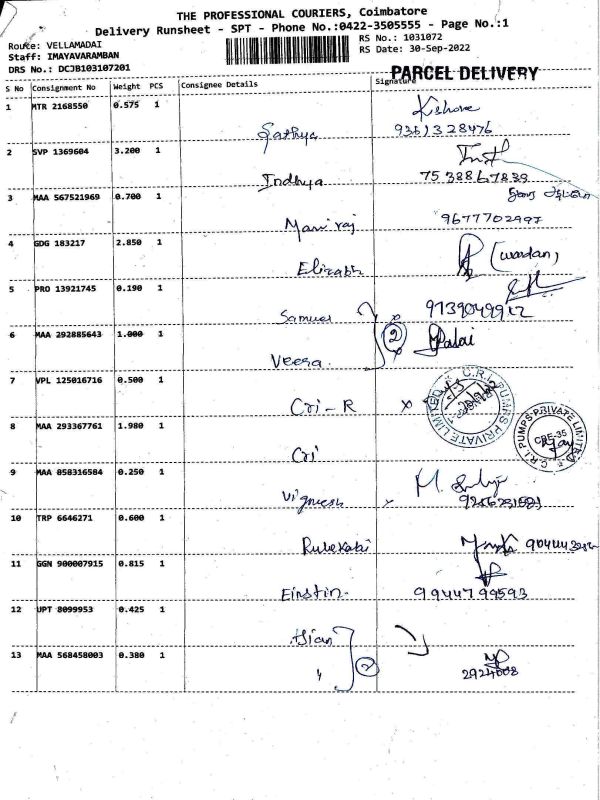 THE PROFESSIONAL COURIERS, Coimbatore
Delivery Runsheet - SPT - Phone No.:0422-3505555 - Page No.:1
Route: VELLAMADAI
RS No.: 1031072
Staff: IMAYAVARAMBAN
RS Date: 30-Sep-2022
DRS No.: DCJB103107201
PARCEL DELIVERY
S No Consignment No Weight PCS Consignee Details Signature
1 MTR 2168550 0.575 1
Kishore
Sathya 9361328476
2 SVP 1369604 3.200 1
Indhya 7538867839
3 MAA 567521969 0.700 1
Maniraj 9677702997
4 GDG 183217 2.850 1
(wardan)
Elizabh
5 PRO 13921745 0.190 1
Samuel 9739049912
6 MAA 292885643 1.000 1
2
Veera
7 VPL 125016716 0.500 1
Cri-R x
C.R.I. PUMPS PRIVATE LIMITED
8 MAA 293367761 1.980 1
Cri
C.R.I. PUMPS PRIVATE LIMITED
CBE-35
9 MAA 058316584 0.250 1
Vignesh x
10 TRP 6646271 0.600 1
11 GGN 900007915 0.815 1
Einstin 9944799593
12 UPT 8099953 0.425 1
13 MAA 568458003 0.380 1
" 2
2924008